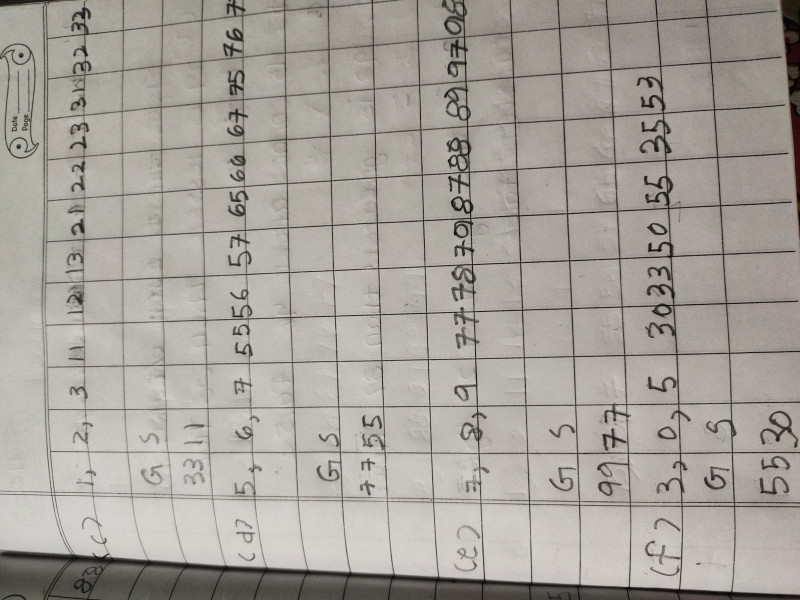 Date
Page
(c) 1, 2, 3 11 12 13 21 22 23 31 32 33
G S
33 11
(d) 5, 6, 7 55 56 57 65 66 67 75 76 7
G S
77 55
(e) 7, 8, 9 77 78 79 87 88 89 97 98
G S
99 77
(f) 3, 0, 5 30 33 50 55 35 53
G S
55 30